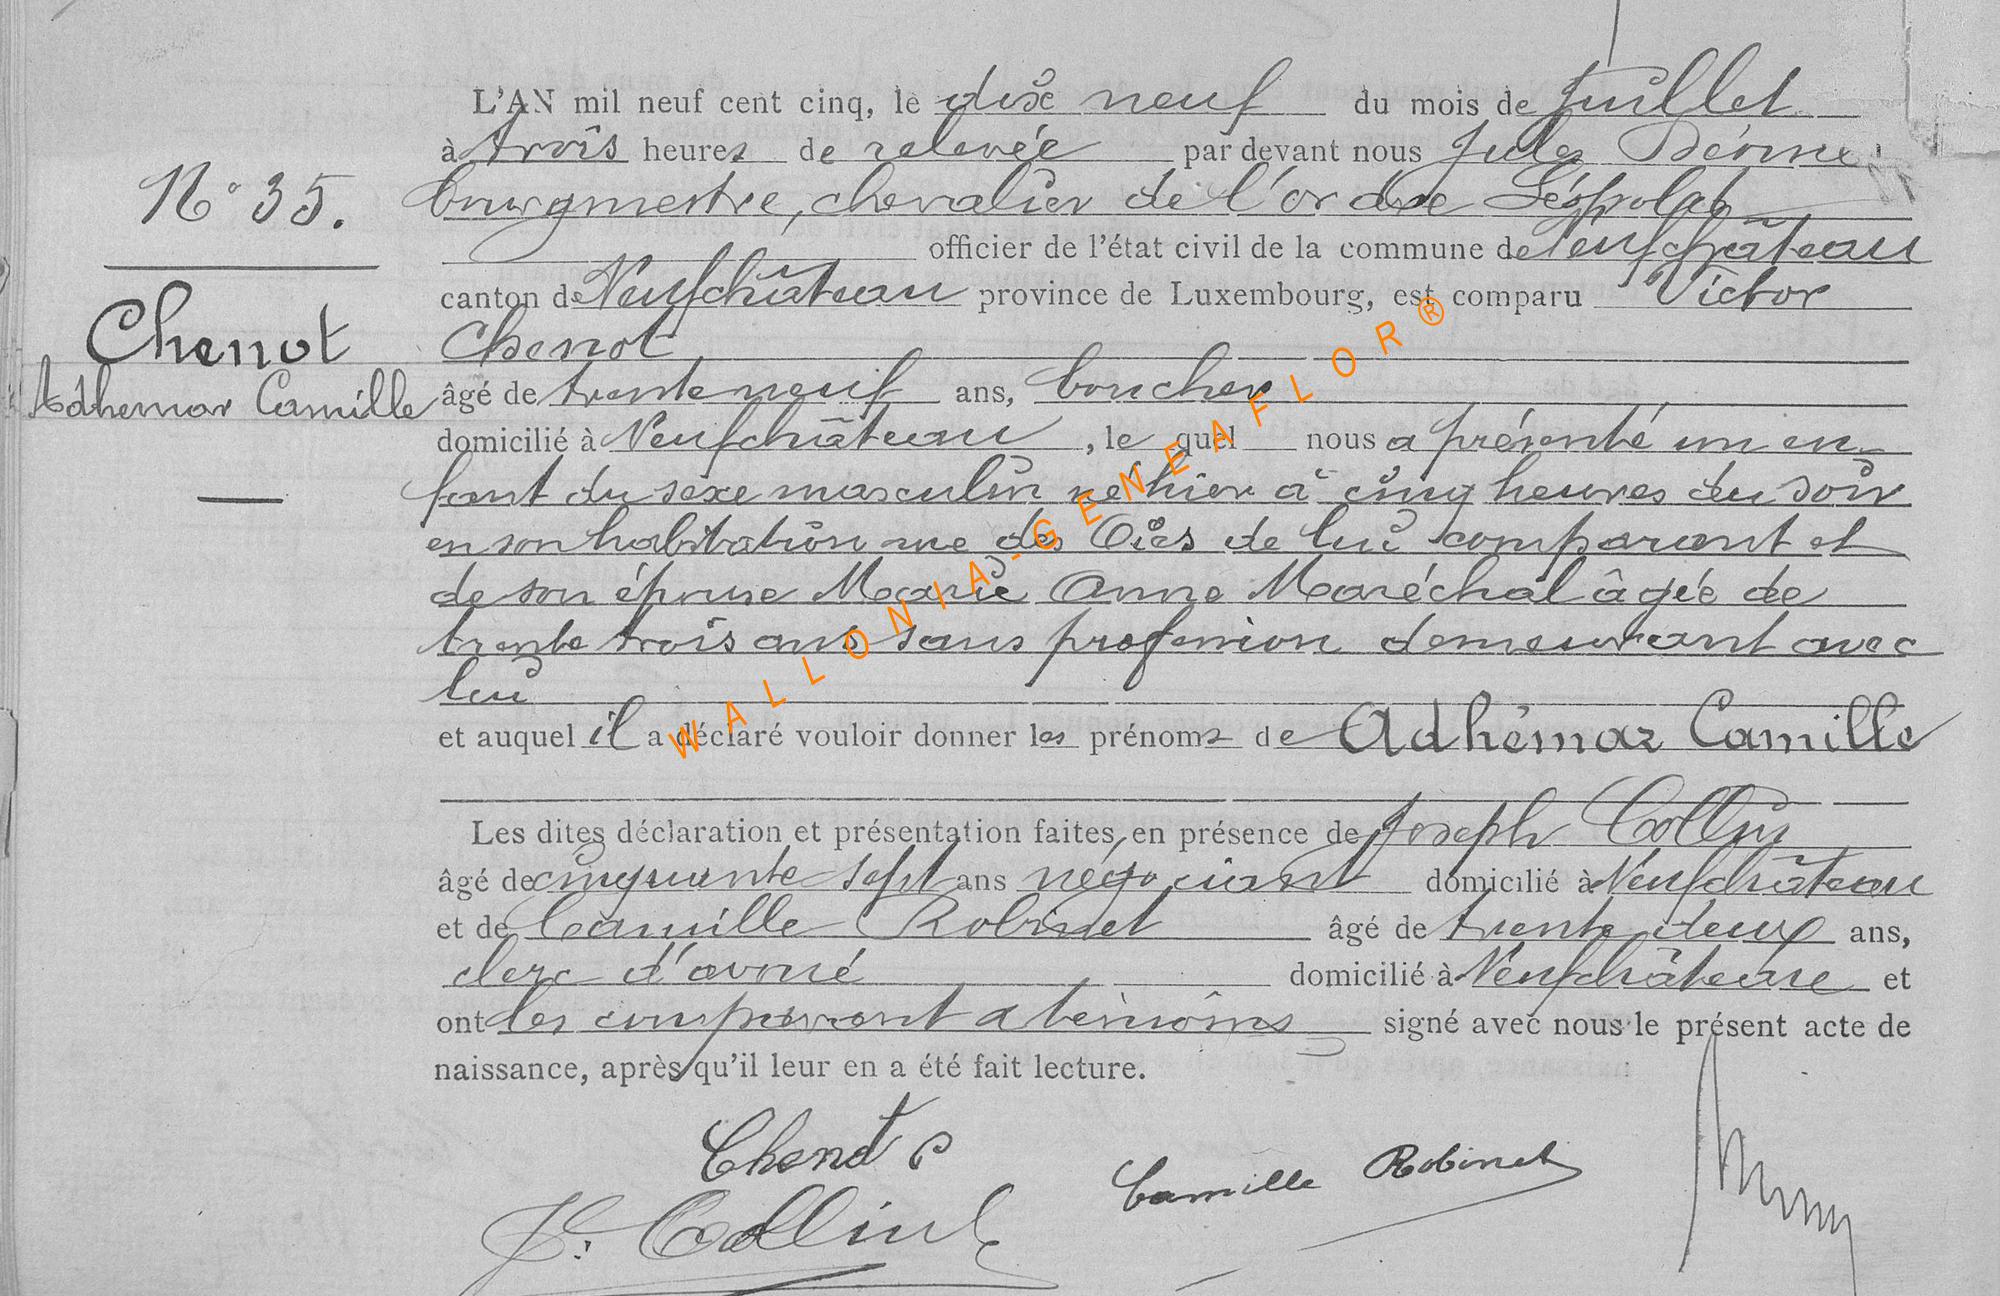 L'AN mil neuf cent cinq, le dix neuf du mois de Juillet
à trois heures de relevée par devant nous Jules
N° 35.
bourgmestre, chevalier de l'ordre Léopold
officier de l'état civil de la commune de Neufchâteau
canton de Neufchâteau province de Luxembourg, est comparu Victor
Chenot
Chenot
Adhemar Camille
âgé de trente neuf ans, boucher
domicilié à Neufchâteau, lequel nous a présenté un en-
fant du sexe masculin né hier à cinq heures du soir
en son habitation rue des Oies de lui comparant et
de son épouse Marie Anne Maréchal âgée de
trente trois ans sans profession demeurant avec
lui
et auquel il a déclaré vouloir donner les prénoms de Adhémar Camille
Les dites déclaration et présentation faites, en présence de Joseph Collin
âgé de cinquante sept ans négociant domicilié à Neufchâteau
et de Camille Robinet âgé de trente deux ans,
clerc d'avoué domicilié à Neufchâteau et
ont les comparant & témoins signé avec nous le présent acte de
naissance, après qu'il leur en a été fait lecture.
Chenot
Camille Robinet
J. Collin
WALLONIA-GENEAFLOR®